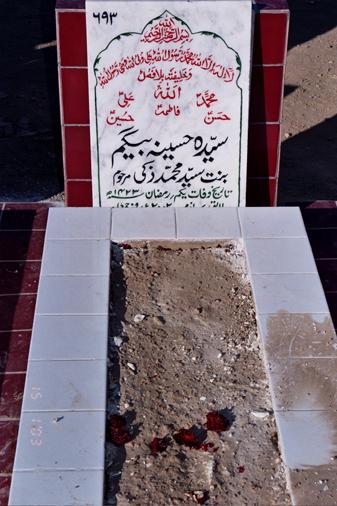 ۶۹۳
بسم اللہ الرحمن الرحیم
لا الہ الا اللہ محمد رسول اللہ علی ولی اللہ وصی رسول اللہ
وخلیفتہ بلا فصل
اللہ
محمد علی
فاطمہ
حسن حسین
سیدہ حسینہ بیگم
بنت سید محمد ذکی مرحوم
تاریخ وفات یکم رمضان ۱۴۲۳ھ
15 1 03